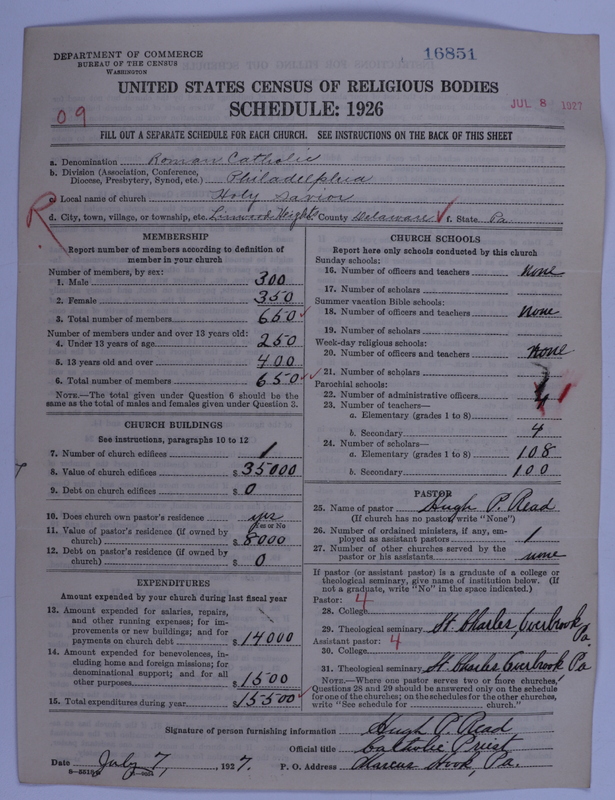 DEPARTMENT OF COMMERCE
BUREAU OF THE CENSUS
WASHINGTON
16851
UNITED STATES CENSUS OF RELIGIOUS BODIES
SCHEDULE: 1926
JUL 8 1927
09
FILL OUT A SEPARATE SCHEDULE FOR EACH CHURCH. SEE INSTRUCTIONS ON THE BACK OF THIS SHEET
a. Denomination Roman Catholic
b. Division (Association, Conference, Diocese, Presbytery, Synod, etc.) Philadelphia
c. Local name of church Holy Savior
d. City, town, village, or township, etc. Linwood Heights e. County Delaware f. State Pa.
R
MEMBERSHIP
Report number of members according to definition of
member in your church
Number of members, by sex:
1. Male 300
2. Female 350
3. Total number of members 650
Number of members under and over 13 years old:
4. Under 13 years of age 250
5. 13 years old and over 400
6. Total number of members 650
NOTE.—The total given under Question 6 should be the
same as the total of males and females given under Question 3.
CHURCH BUILDINGS
See instructions, paragraphs 10 to 12
7. Number of church edifices 1
8. Value of church edifices $35000
9. Debt on church edifices $0
10. Does church own pastor's residence yes
Yes or No
11. Value of pastor's residence (if owned by
church) $8000
12. Debt on pastor's residence (if owned by
church) $0
EXPENDITURES
Amount expended by your church during last fiscal year
13. Amount expended for salaries, repairs,
and other running expenses; for im-
provements or new buildings; and for
payments on church debt $14000
14. Amount expended for benevolences, in-
cluding home and foreign missions; for
denominational support; and for all
other purposes $1500
15. Total expenditures during year $15500
CHURCH SCHOOLS
Report here only schools conducted by this church
Sunday schools:
16. Number of officers and teachers none
17. Number of scholars
Summer vacation Bible schools:
18. Number of officers and teachers none
19. Number of scholars
Week-day religious schools:
20. Number of officers and teachers none
21. Number of scholars
Parochial schools:
22. Number of administrative officers
23. Number of teachers—
a. Elementary (grades 1 to 8)
b. Secondary 4
24. Number of scholars—
a. Elementary (grades 1 to 8) 108
b. Secondary 100
PASTOR
25. Name of pastor Hugh P. Read
(If church has no pastor, write "None")
26. Number of ordained ministers, if any, em-
ployed as assistant pastors 1
27. Number of other churches served by the
pastor or his assistants none
If pastor (or assistant pastor) is a graduate of a college or
theological seminary, give name of institution below. (If
not a graduate, write "No" in the space indicated.)
Pastor: 4
28. College
29. Theological seminary St. Charles, Overbrook Pa.
Assistant pastor: 4
30. College
31. Theological seminary St. Charles Overbrook Pa
NOTE.—Where one pastor serves two or more churches,
Questions 28 and 29 should be answered only on the schedule
for one of the churches; on the schedules for the other churches,
write "See schedule for church."
Signature of person furnishing information Hugh P. Read
Official title Catholic Priest
Date July 7, 1927. P. O. Address Marcus Hook, Pa.